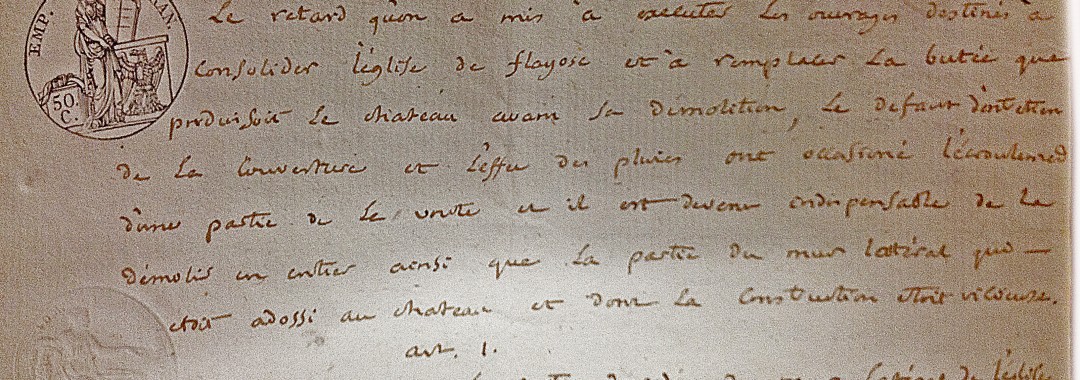 EMP. 
50. C.
Le retard qu'on a mis à executer les ouvrages destinés à
consolider l'église de flayosc et à remplacer la butée que
produisoit le chateau avant sa démolition, le defaut d'entretien
de la couverture et l'effet des pluies ont occasioné l'écroulement
d'une partie de la voute et il est devenu indispensable de la
démolir en entier ainsi que la partie du mur latéral qui —
etoit adossé au chateau et dont la construction etoit vicieuse.
art. 1.